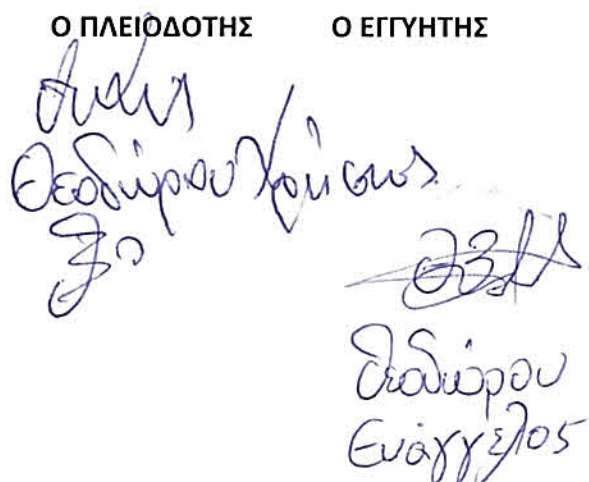 Ο ΠΛΕΙΟΔΟΤΗΣ Ο ΕΓΓΥΗΤΗΣ
Θεοδώρου Χρήστος
Θεοδώρου
Ευάγγελος